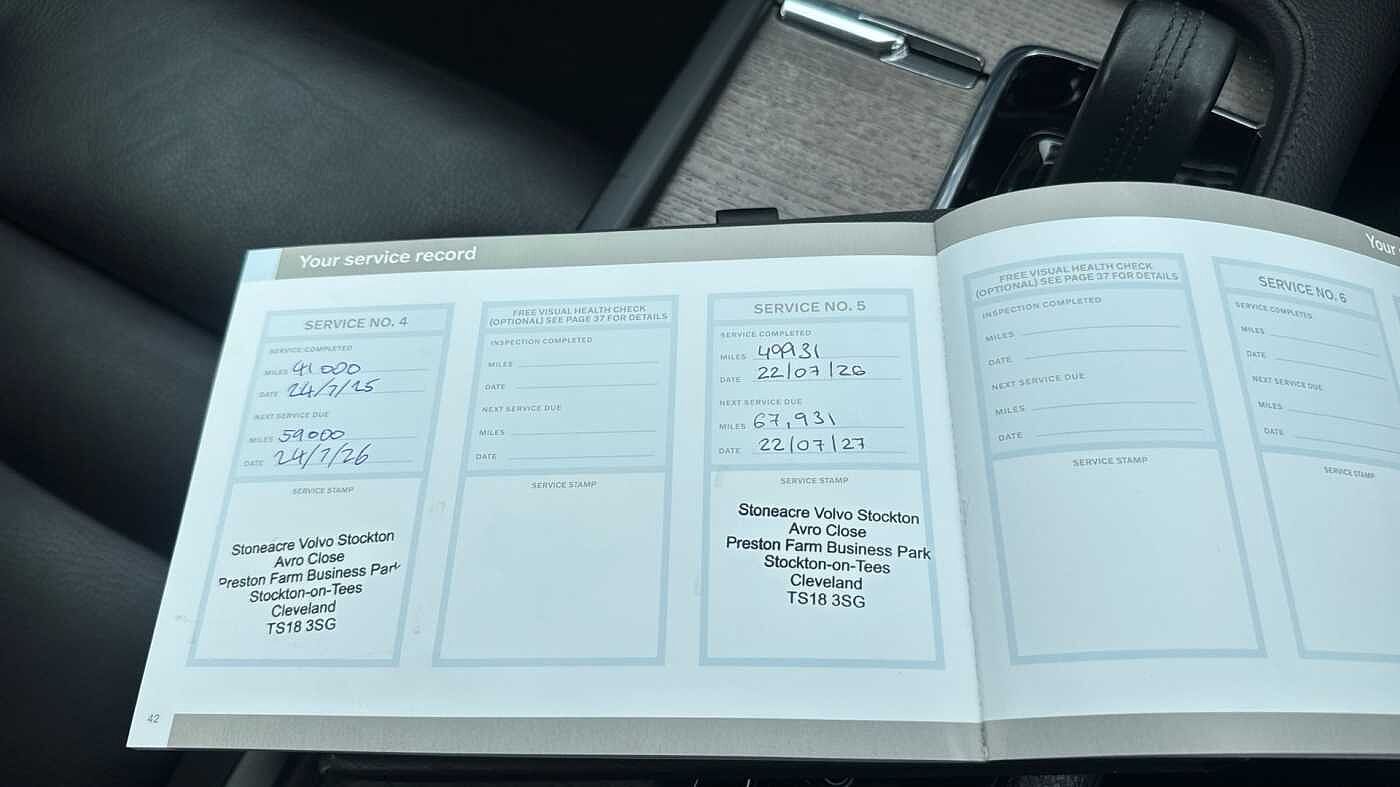 Your service record
SERVICE NO. 4
SERVICE COMPLETED
MILES 41000
DATE 24/7/25
NEXT SERVICE DUE
MILES 59000
DATE 24/7/26
SERVICE STAMP
Stoneacre Volvo Stockton
Avro Close
Preston Farm Business Park
Stockton-on-Tees
Cleveland
TS18 3SG
FREE VISUAL HEALTH CHECK
(OPTIONAL) SEE PAGE 37 FOR DETAILS
INSPECTION COMPLETED
MILES
DATE
NEXT SERVICE DUE
MILES
DATE
SERVICE STAMP
SERVICE NO. 5
SERVICE COMPLETED
MILES 49931
DATE 22/07/26
NEXT SERVICE DUE
MILES 67,931
DATE 22/07/27
SERVICE STAMP
Stoneacre Volvo Stockton
Avro Close
Preston Farm Business Park
Stockton-on-Tees
Cleveland
TS18 3SG
42
Your
FREE VISUAL HEALTH CHECK
(OPTIONAL) SEE PAGE 37 FOR DETAILS
INSPECTION COMPLETED
MILES
DATE
NEXT SERVICE DUE
MILES
DATE
SERVICE STAMP
SERVICE NO. 6
SERVICE COMPLETED
MILES
DATE
NEXT SERVICE DUE
MILES
DATE
SERVICE STAMP